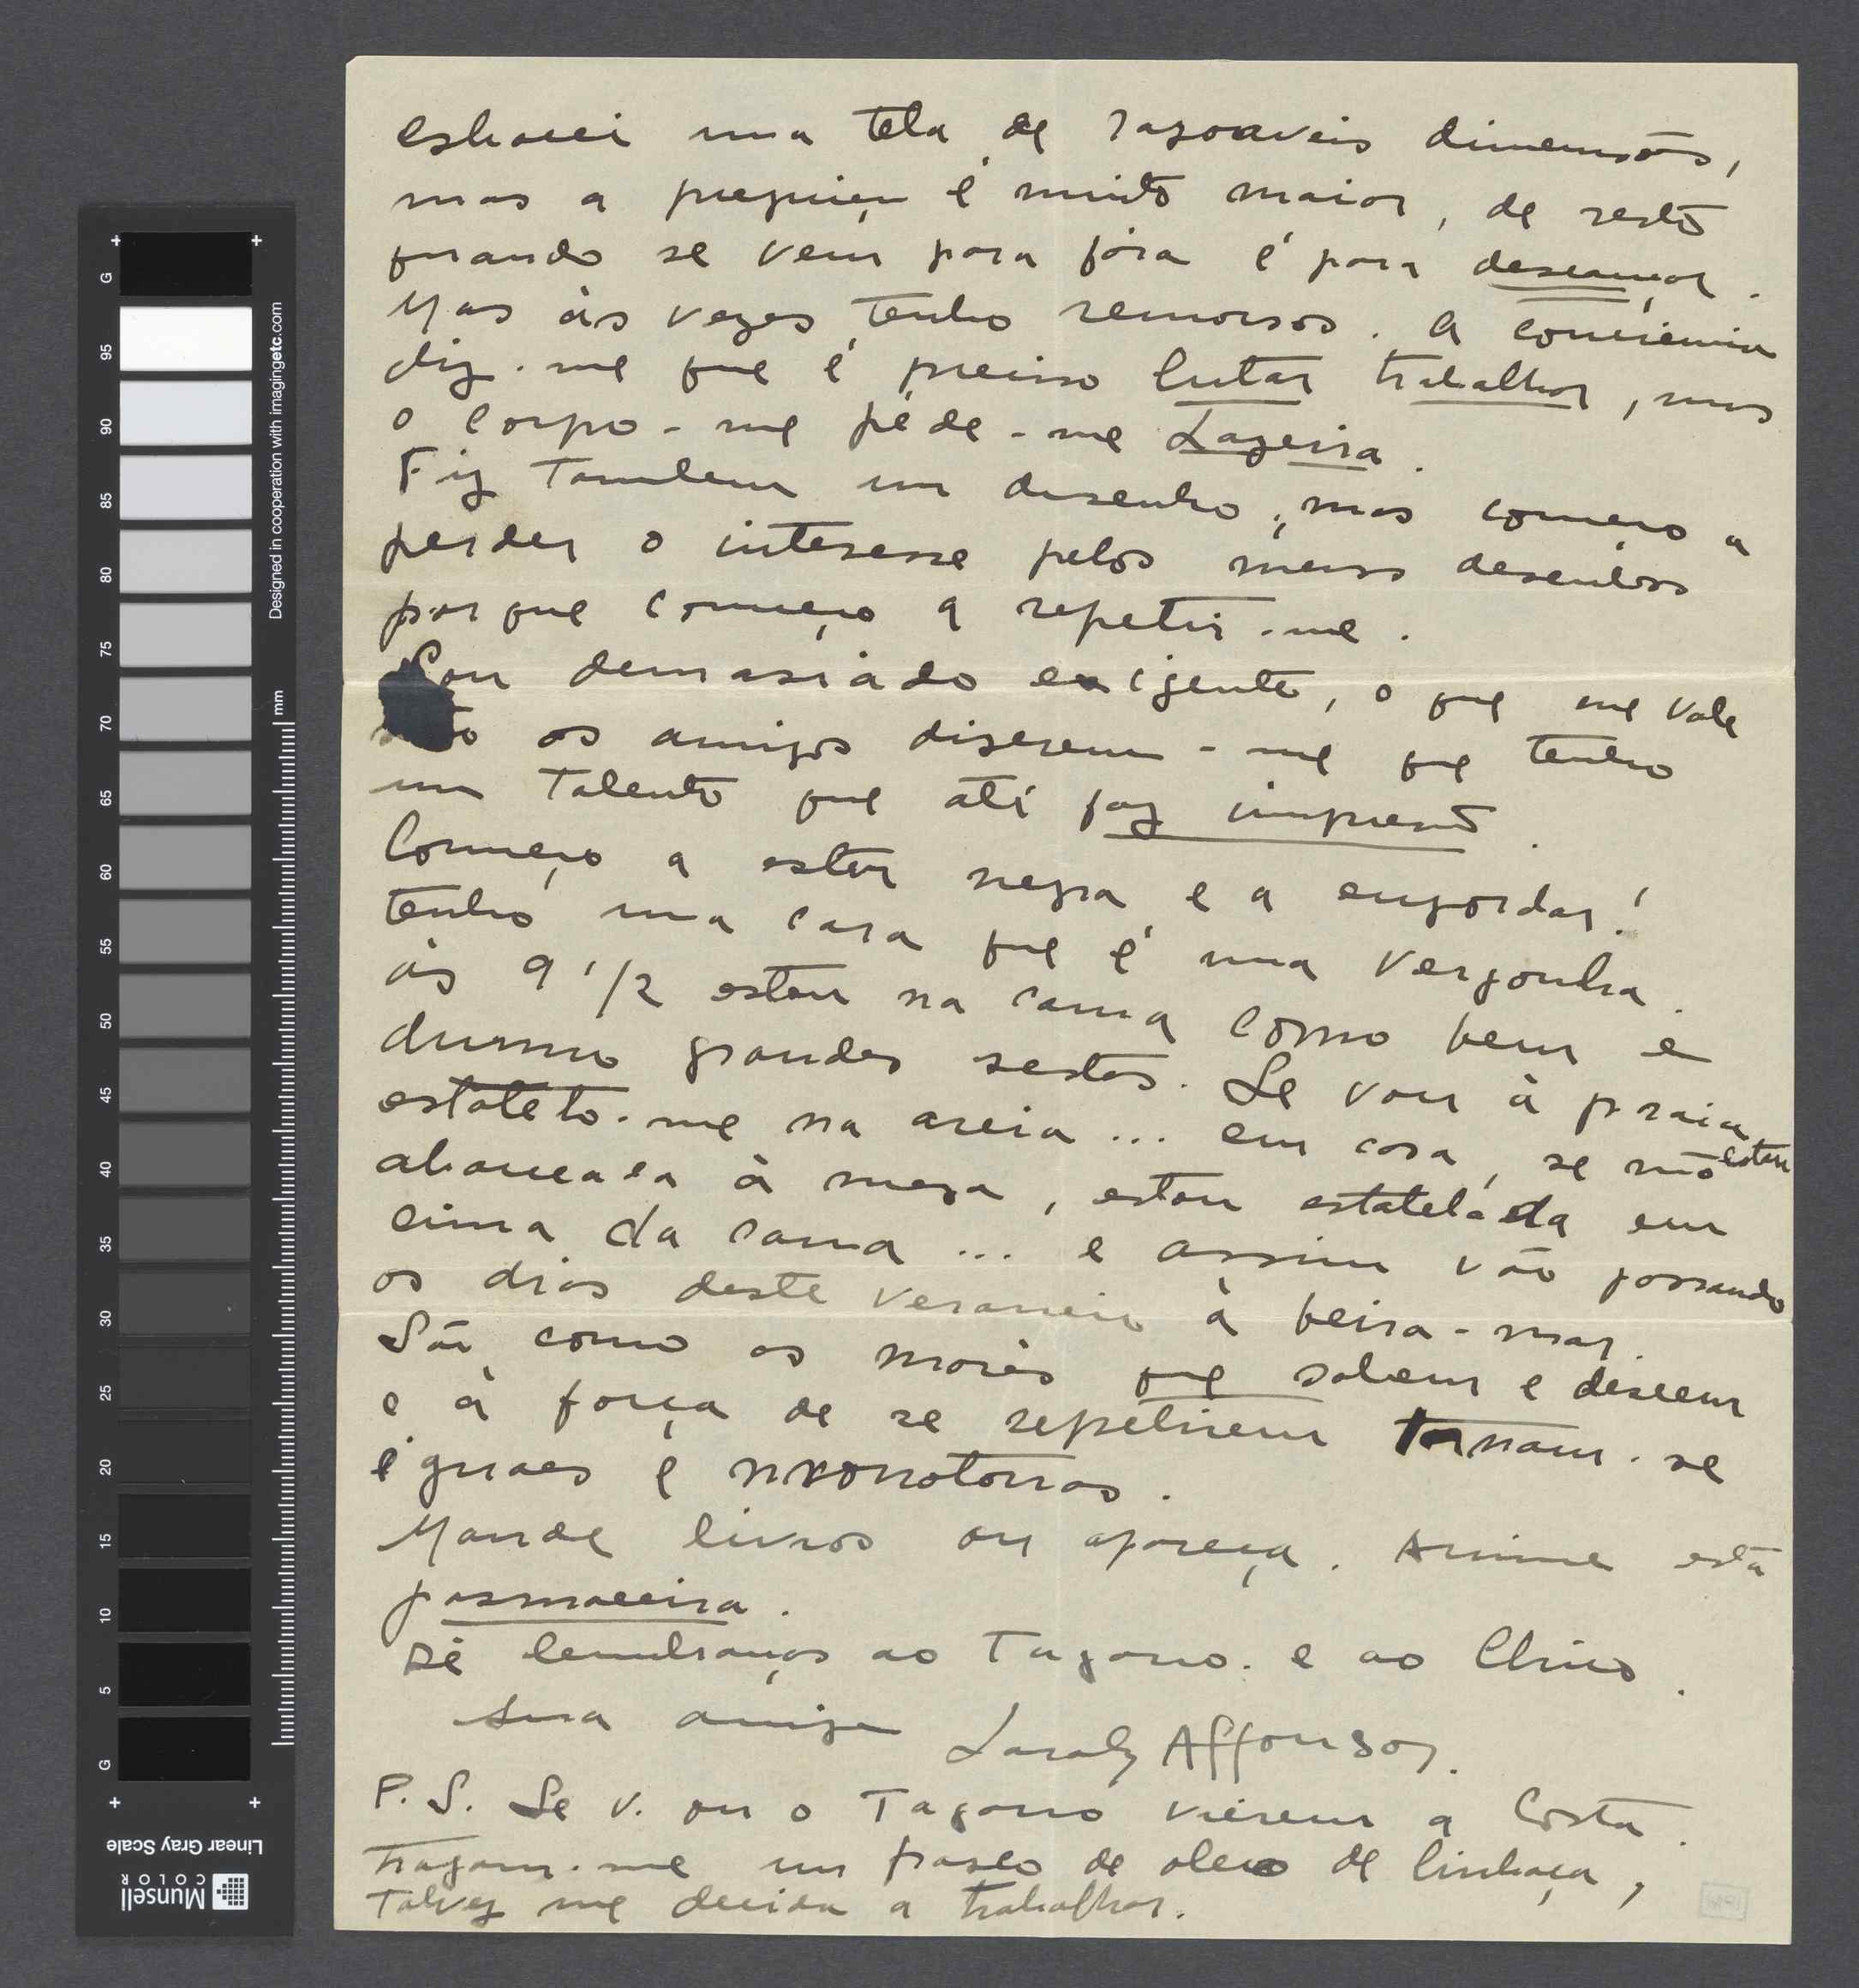 esbocei uma tela de razoaveis dimensões,
mas a preguiça é muito maior, de resto
quando se vem para fóra é para descançar.
Mas às vezes tenho remorsos. A conciencia
diz-me que é preciso lutar trabalhar, mas
o corpo-me péde-me Lazeira.
Fiz tambem um desenho, mas começo a
perder o interesse pelos meus desenhos
porque começo a repetir-me.
Sou demasiádo exigente, o que me vale
os amigos diserem-me que tenho
um talento que até faz impressão.
Começo a estar negra e a engordar!
tenho uma cara que é uma vergonha.
às 9 1/2 estou na cama como bem e
durmo grandes sestas. Se vou à praia
estatelo-me na areia... em casa, se não estou
abancada à meza, estou estateláda em
cima da cama... e assim vão passando
os dias deste veraneio à beira-mar.
São como as marés que sobem e descem
e à força de se repetirem tornam-se
eguaes e monotonas.
Mande livros ou apareça. Anime esta
pasmaceira.
Dê lembranças ao Tagarro. e ao Chico.
Sua amiga Sarah Affonso.
P.S. Se V. ou o Tagarro vierem a Costa.
tragam-me um frasco de oleo de linhaça,
Talvez me decida a trabalhar.
G
95
90
85
80
75
70
65
60
55
50
45
40
35
30
25
20
15
10
5
G
Designed in cooperation with imagingetc.com
mm
Linear Gray Scale
Munsell
COLOR